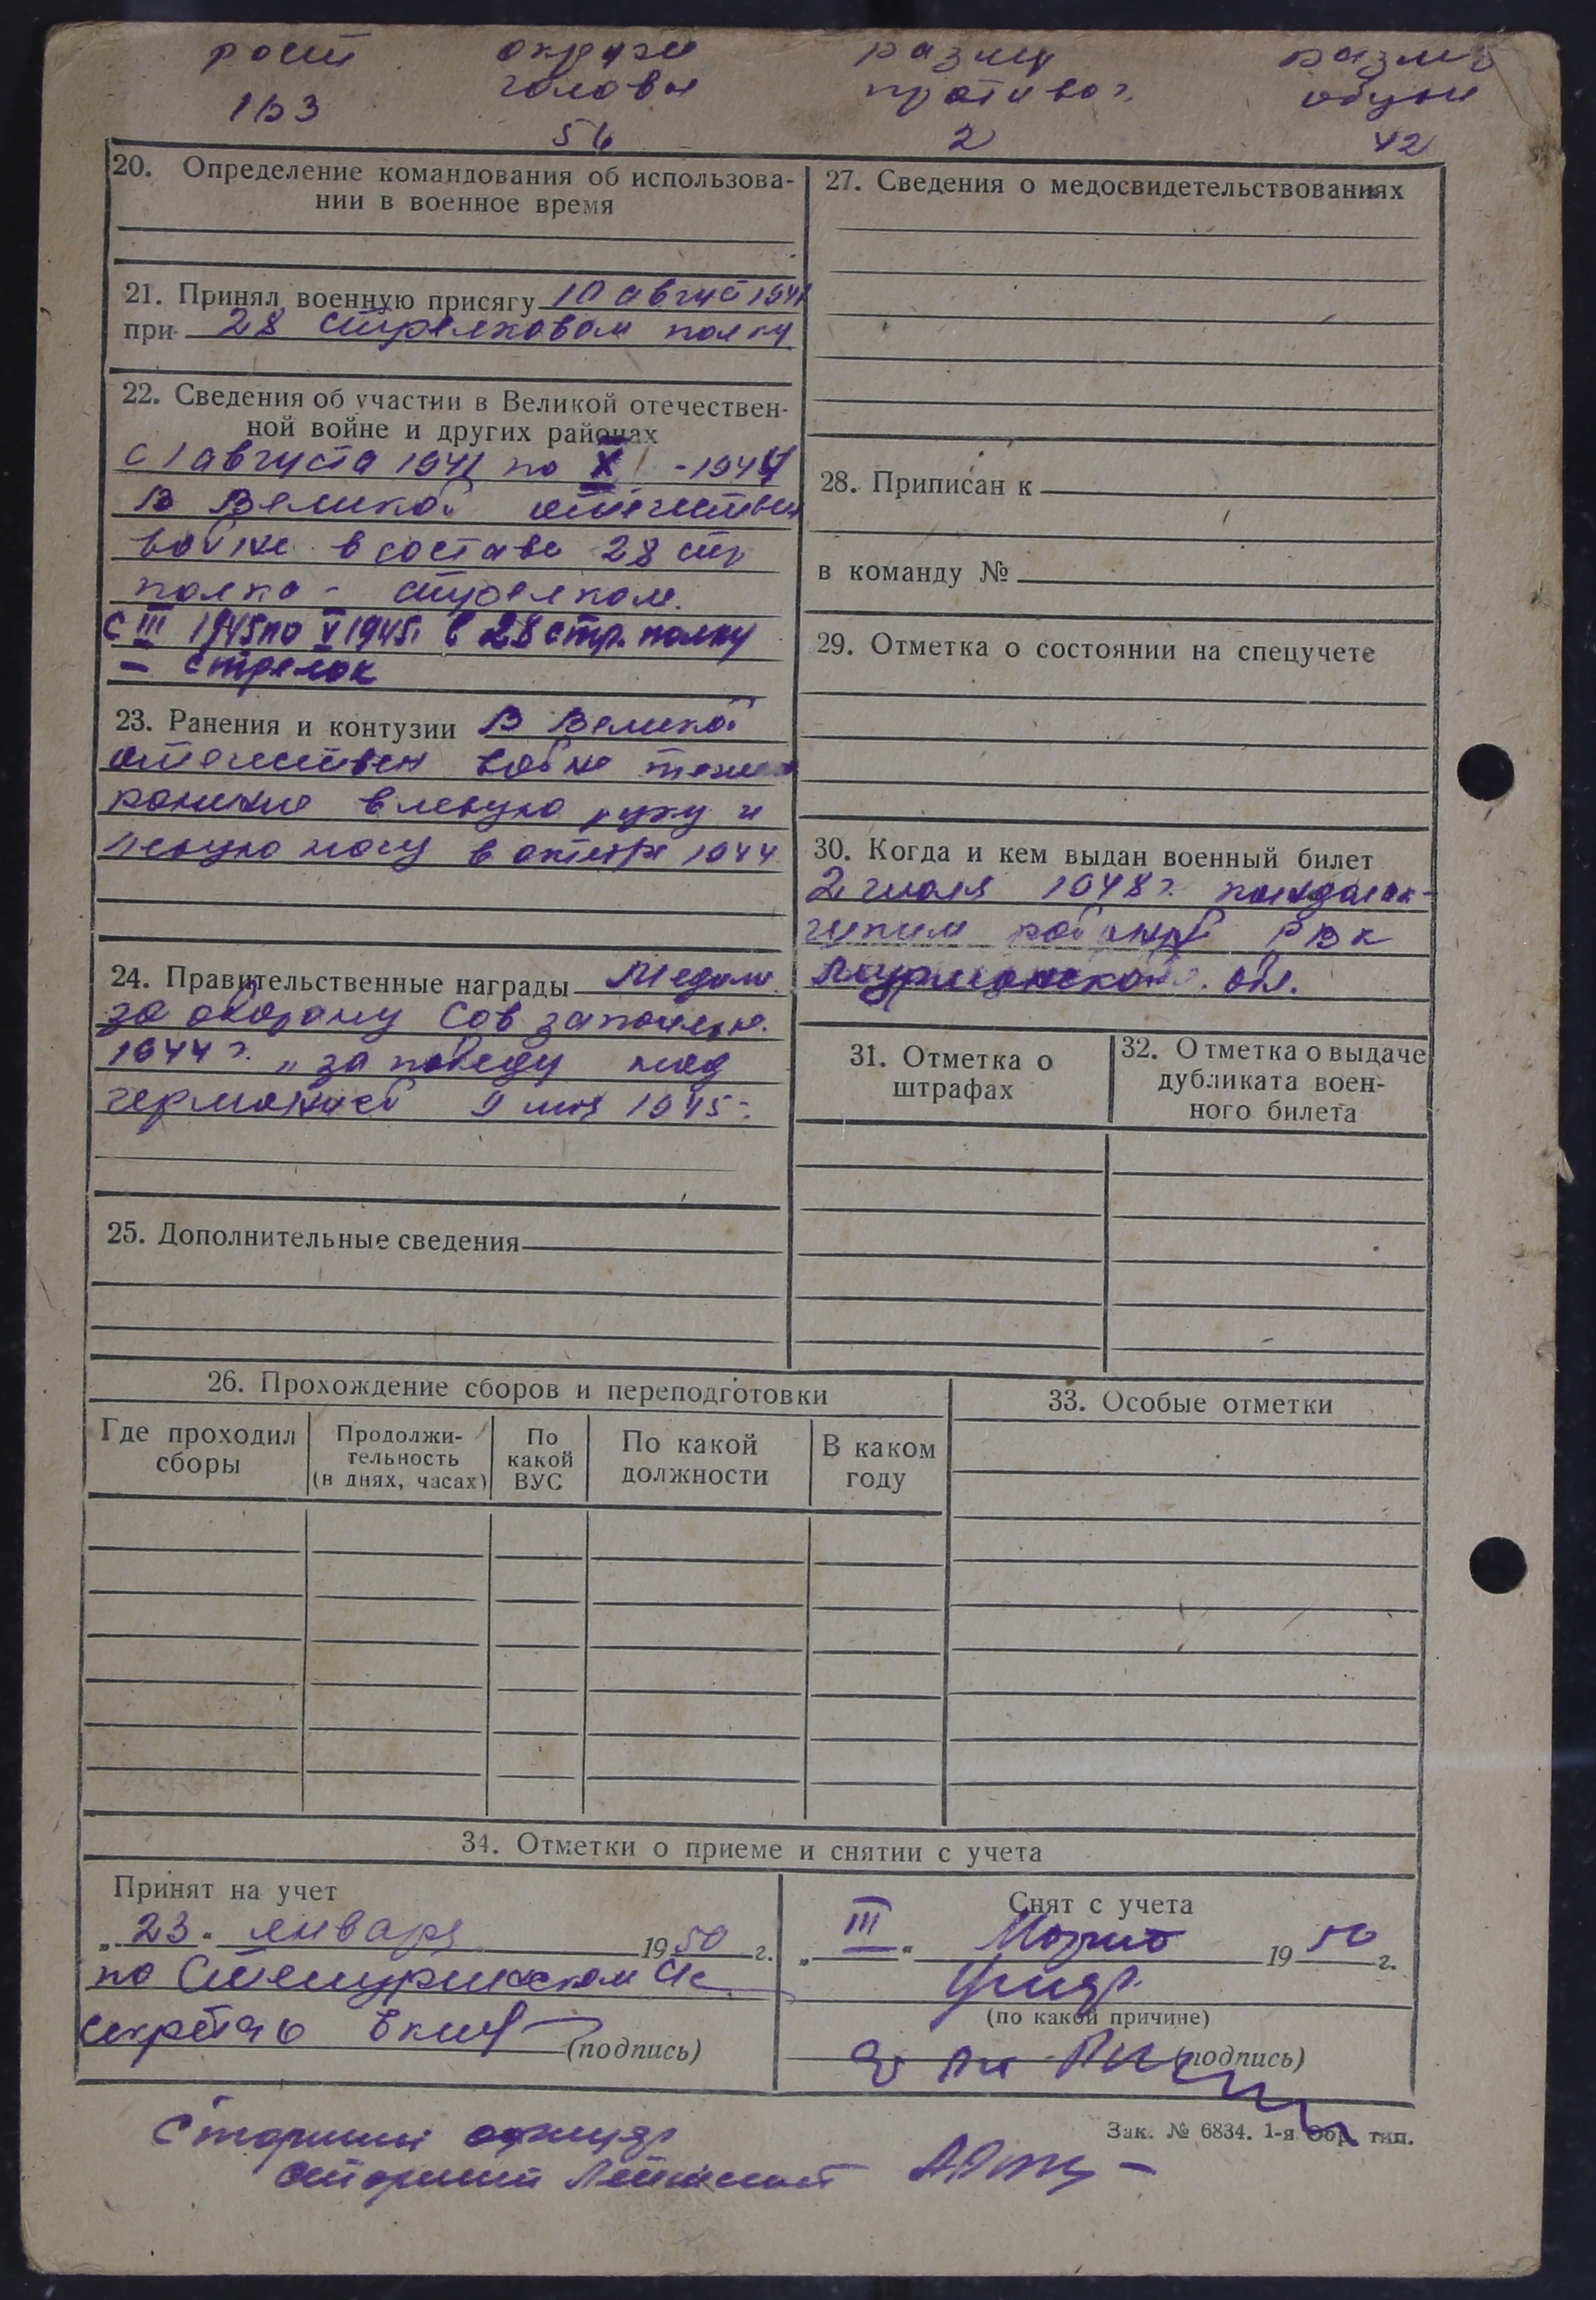 рост округ размер размер
головы противог. обуви
163 56 2 42
20. Определение командования об использова-
нии в военное время
21. Принял военную присягу 10 август 1941
при 28 стрелковом полку
22. Сведения об участии в Великой отечествен-
ной войне и других районах
с 1 августа 1941 по X -1944
В Великой отечествен
войне в составе 28 стр
полка - стрелком.
с III 1945 по V 1945г в 28 стр. полку
- стрелок
23. Ранения и контузии В Великой
отечествен войне
ранение в левую руку и
левую ногу в октябре 1944
24. Правительственные награды Медаль
за оборону Сов заполярья.
1944 г. „за победу над
германией 9 мая 1945г.
25. Дополнительные сведения
27. Сведения о медосвидетельствованиях
28. Приписан к
в команду №
29. Отметка о состоянии на спецучете
30. Когда и кем выдан военный билет
2 июля 1948 г. кандалак-
РВК
Мурманской обл.
31. Отметка о
штрафах
32. Отметка о выдаче
дубликата воен-
ного билета
26. Прохождение сборов и переподготовки
Где проходил
сборы
Продолжи-
тельность
(в днях, часах)
По
какой
ВУС
По какой
должности
В каком
году
33. Особые отметки
34. Отметки о приеме и снятии с учета
Принят на учет
„ 23 " января 1950 г.
по
секретарь (подпись)
Снят с учета
„ III " Марта 1950 г.
(по какой причине)
(подпись)
Зак. № 6834. 1-я Обр. тип.
Старший
старший Лейтенант